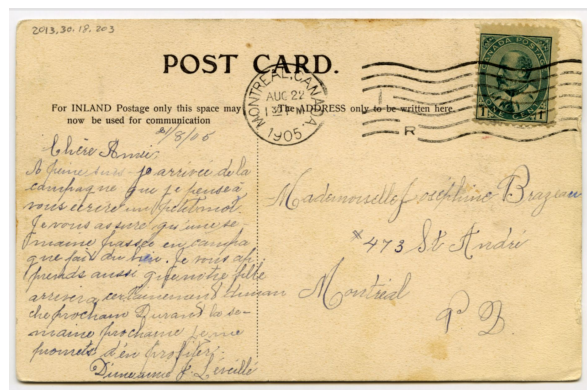 2013.30.18.203
POST CARD.
For INLAND Postage only this space may
now be used for communication
The ADDRESS only to be written here.
MONTREAL, CANADA.
AUG 22
1905
R
CANADA POSTAGE
21/8/05
Chère Amie;
A peine suis-je arrivée de la
campagne que je pense à
vous écrire un petit mot.
Je vous assure qu'une se-
maine passée en campa
gne fait du bien. Je vous ap
prends aussi que notre
arrivera certainement diman
che prochain Durant la se-
maine prochaine je me
promets d'en profiter.
Léveillé
Mademoiselle Josephine Brazeau
#473 St André
Montréal
P Q.